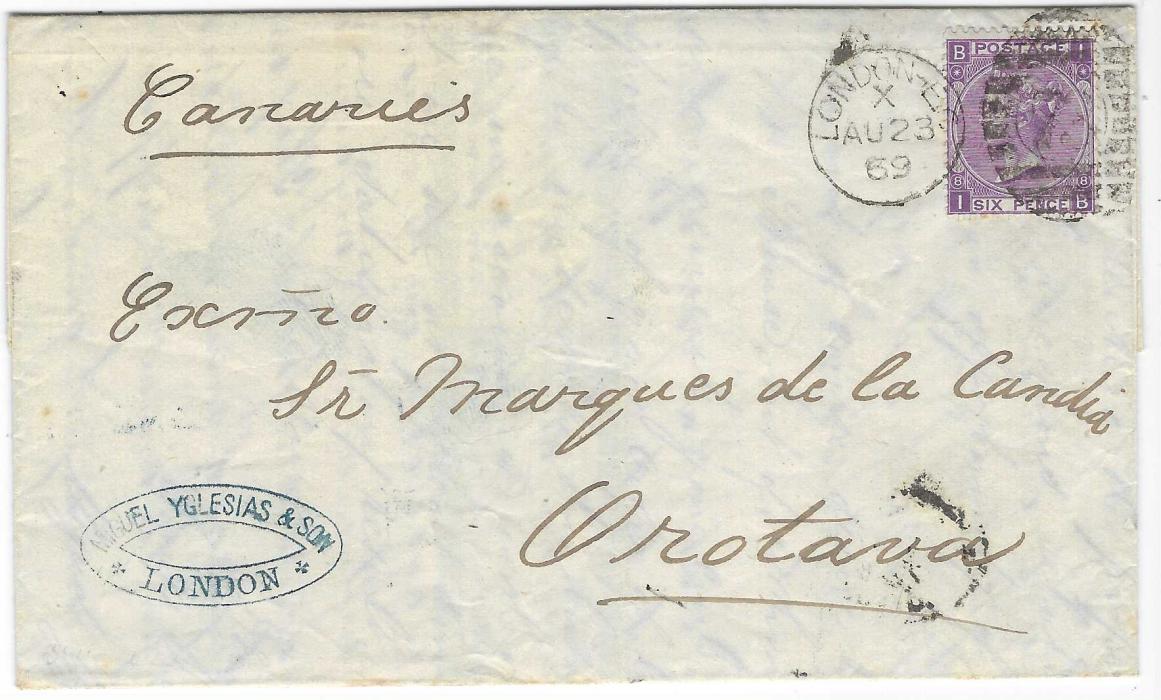 Canaries
LONDON-E.C
X
AU 23
69
B POSTAGE I
8 8
I SIX PENCE B
Exm̃o.
Sr Marques de la Candia
Orotava
MIGUEL YGLESIAS & SON
LONDON